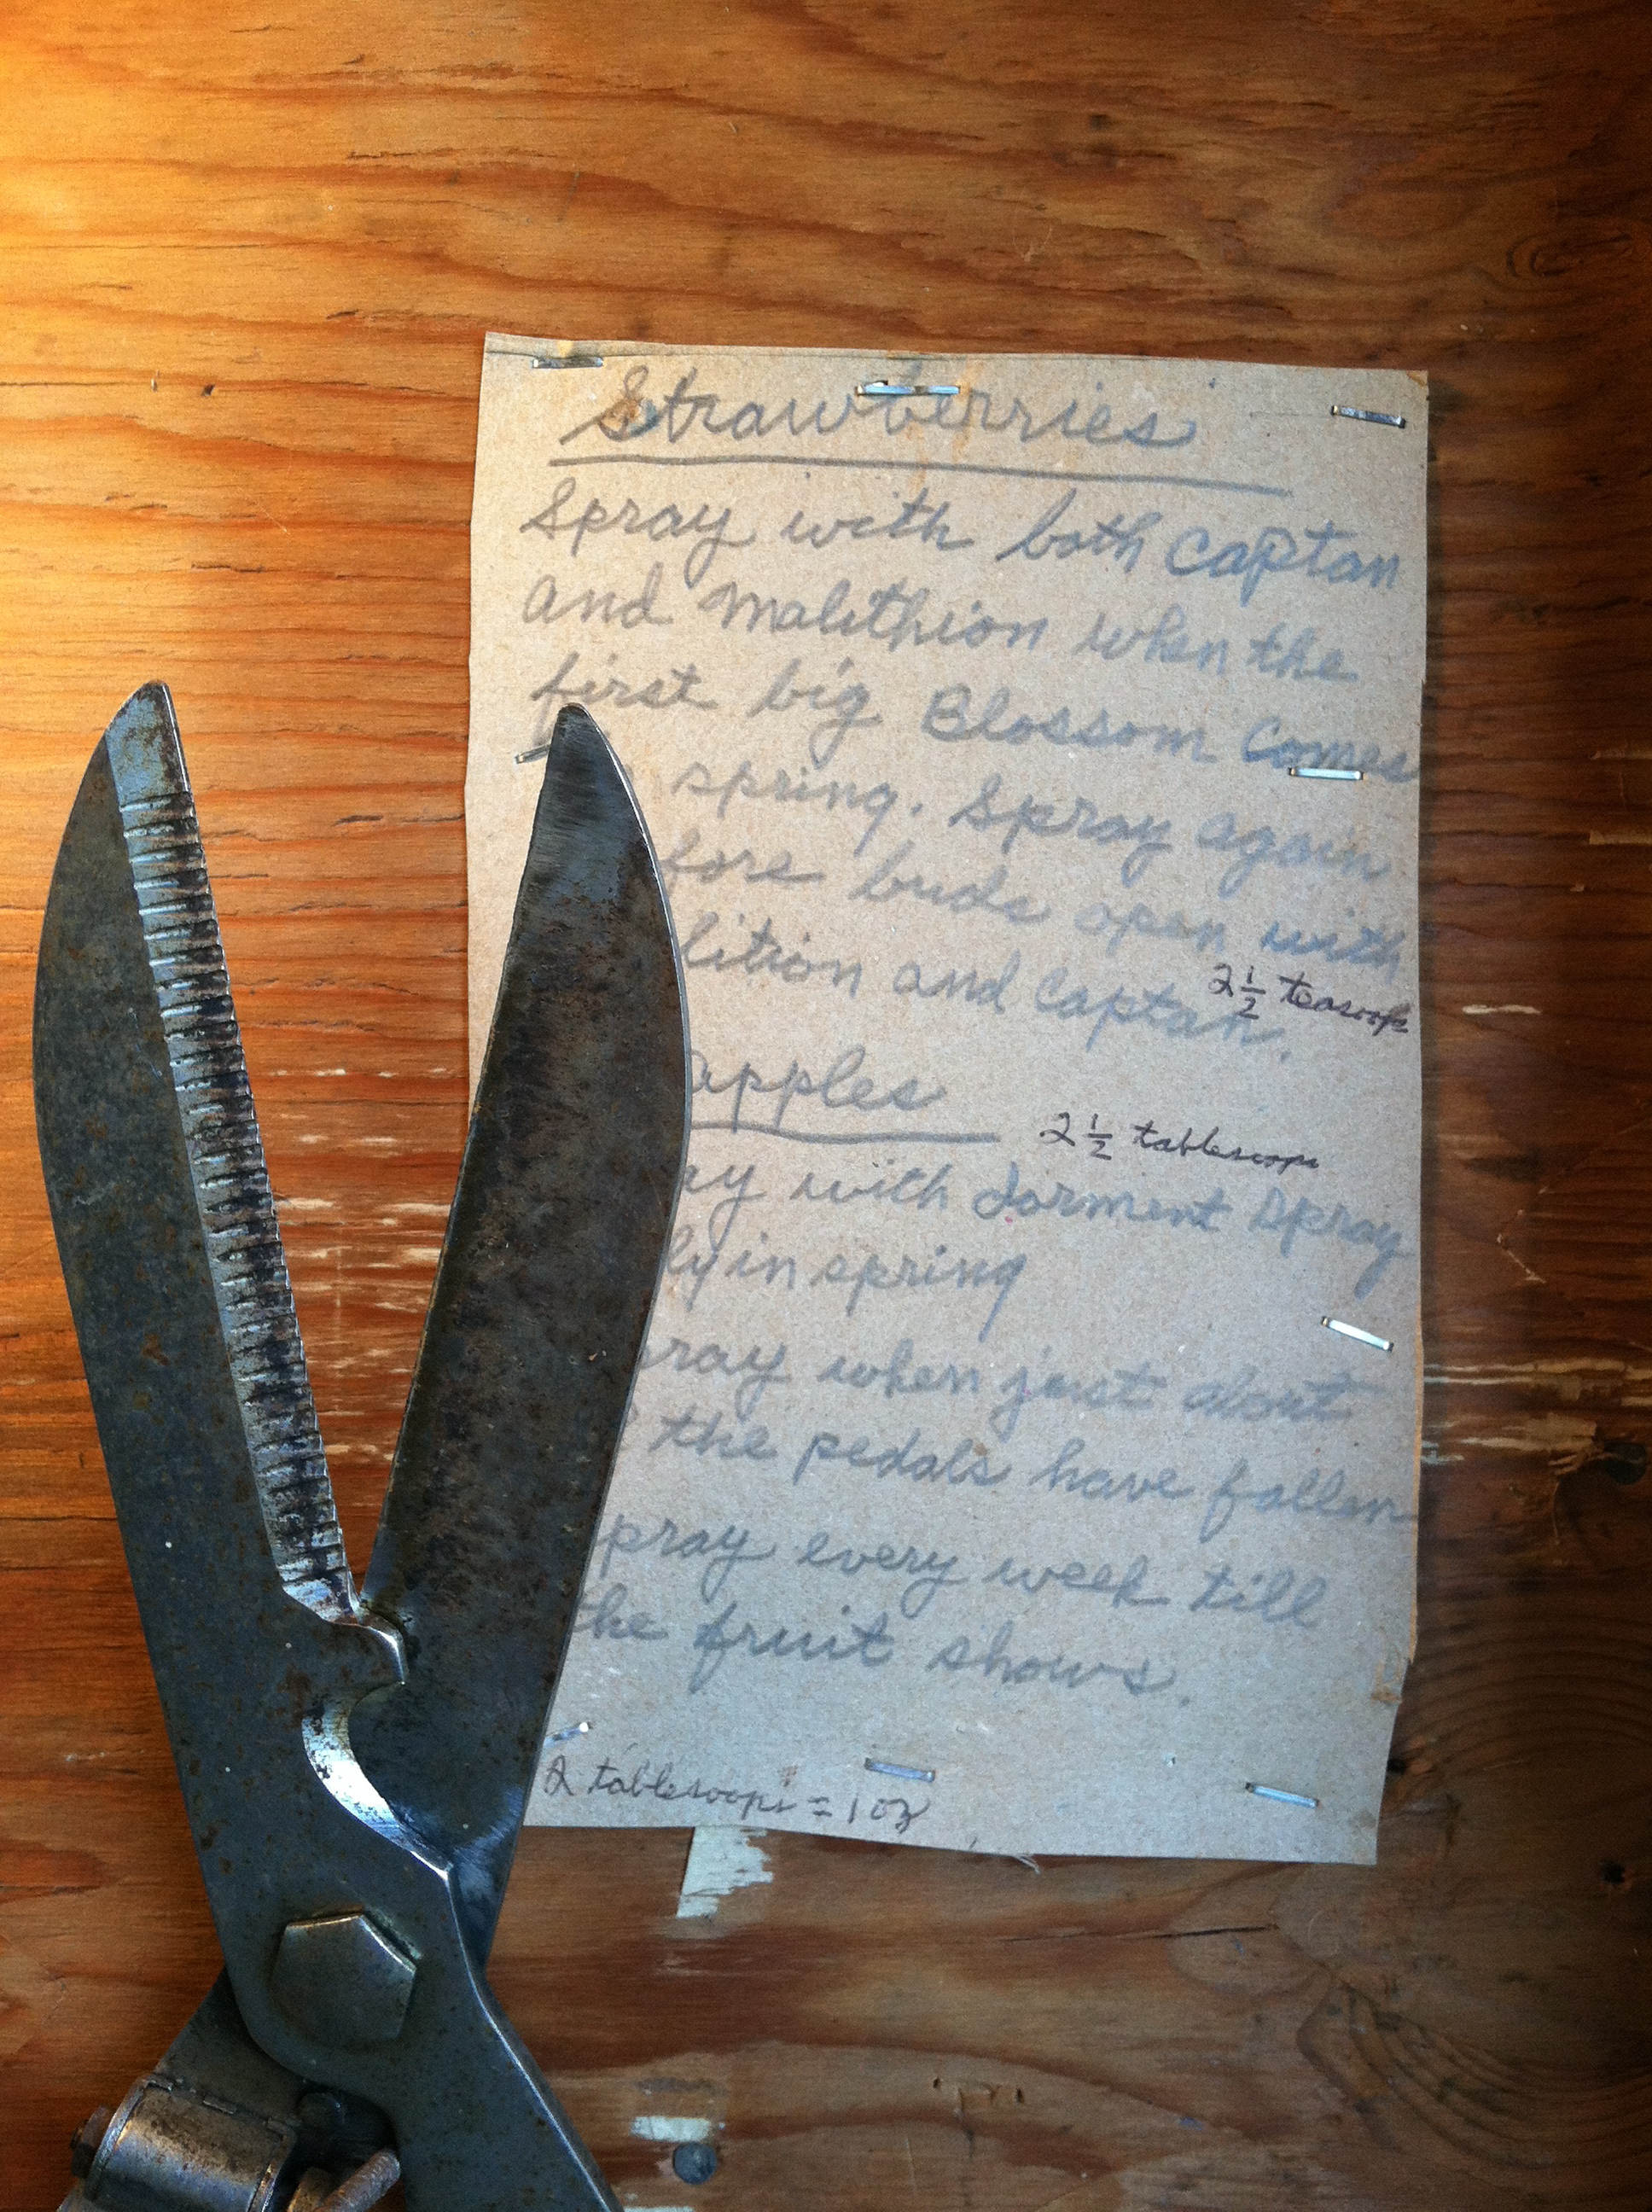 Strawberries
Spray with both Captan
and Malithion when the
first big Blossom Comes
spring. Spray again
fore buds open with
lition and Captan.
2 1/2 teasoops
apples
2 1/2 tablesoops
ay with dorment spray
ly in spring
pray when just about
the pedals have fallen
pray every week till
the fruit shows.
2 tablesoops = 1 oz